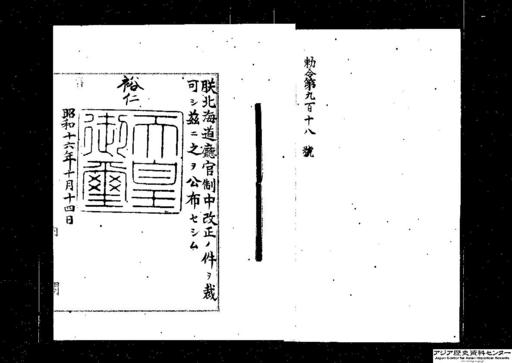 勅令第九百十八號
朕北海道廳官制中改正ノ件ヲ裁
可シ茲ニ之ヲ公布セシム
裕仁
天皇
御璽
昭和十六年十月十四日
アジア歴史資料センター
Japan Center for Asian Historical Records